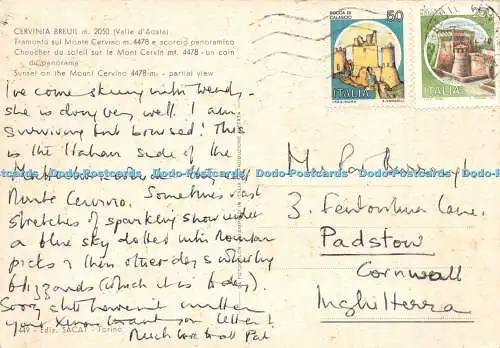 CERVINIA BREUIL m. 2050 (Valle d'Aosta)
Tramonto sul Monte Cervino m. 4478 e scorcio panoramico
Choucher du soleil sur le Mont Cervin mt. 4478 - un coin
du panorama
Sunset on the Mount Cervino 4478 m. - partial view
ROCCA DI
CALASCIO
50
ITALIA
ITALIA
I've come skiing with Wendy.
she is doing very well. I am
surviving but bruised! This
is the Italian side of the
Matterhorn
Monte Cervino. Sometimes vast
stretches of sparkling snow under
a blue sky dotted with mountain
picks & then other days when by
blizzards (which it is today).
Sorry that haven't written
your Xmas letter!
Much love to all Pat
Padstow
Cornwall
Inghilterra
3. Lane.
Ediz. SACAT - Torino
Dodo-Postcards Dodo-Postcards Dodo-Postcards Dodo-Postcards